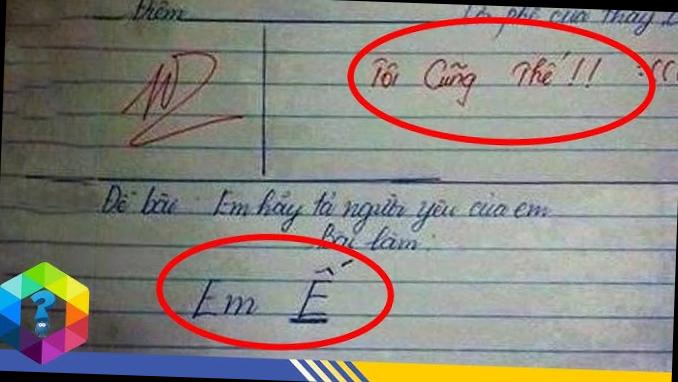 thêm
Lời phê của thầy
10
Tôi Cũng Thế!! :((
Đề bài: Em hãy tả người yêu của em
Bài làm:
Em Ế